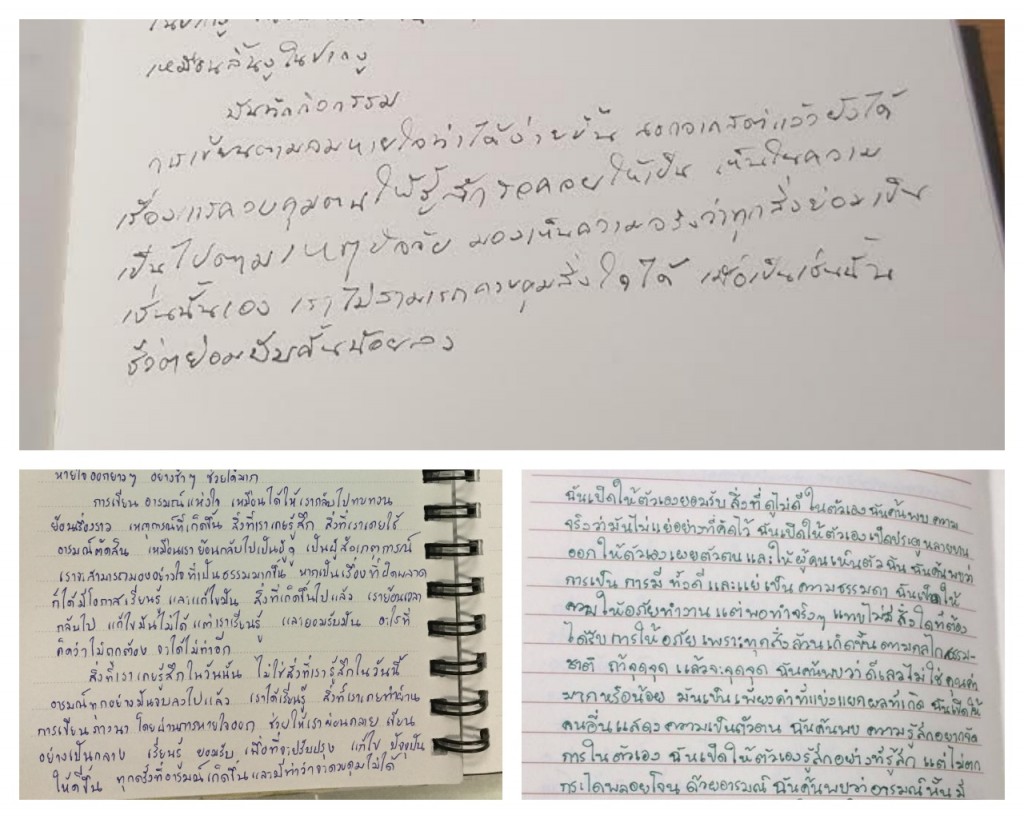 เหมือนลิ้นงูในปากงู
บันทึกกิจกรรม
การเขียนตามลมหายใจทำได้ง่ายขึ้น นอกจากสติแล้วยังได้
เรื่องการควบคุมตนให้รู้สึก รอคอยให้เป็น เห็นในความ
เป็นไปตามเหตุปัจจัย มองเห็นความจริงว่าทุกสิ่งย่อมเป็น
เช่นนั้นเอง เราไม่สามารถควบคุมสิ่งใดได้ เมื่อเป็นเช่นนั้น
ชีวิตย่อมบีบคั้นน้อยลง
หายใจออกยาวๆ อย่างช้าๆ ช่วยได้มาก
การเขียน อารมณ์แห่งใจ เหมือนได้ให้เรากลับไปทบทวน
ย้อนเรื่องราว เหตุการณ์ที่เกิดขึ้น สิ่งที่เราเคยรู้สึก สิ่งที่เราเคยใช้
อารมณ์ตัดสิน เหมือนเราย้อนกลับไปเป็นผู้ดู เป็นผู้สังเกตุการณ์
เราจะสามารถมองอย่างใจที่เป็นธรรมมากขึ้น หากเป็นเรื่องที่ผิดพลาด
ก็ได้มีโอกาสเรียนรู้ และแก้ไขมัน สิ่งที่เกิดขึ้นไปแล้ว เราย้อนเวลา
กลับไป แก้ไขมันไม่ได้ แต่เราเรียนรู้ และยอมรับมัน อะไรที่
คิดว่าไม่ถูกต้อง จะได้ไม่ทำอีก
สิ่งที่เราเคยรู้สึกในวันนั้น ไม่ใช่สิ่งที่เรารู้สึกในวันนี้
อารมณ์ทุกอย่างมันจบลงไปแล้ว เราได้เรียนรู้ สิ่งที่เราเคยทำผ่าน
การเขียนภาวนา โดยผ่านการหายใจออก ช่วยให้เราผ่อนคลาย เขียน
อย่างเป็นกลาง เรียนรู้ ยอมรับ เพื่อที่จะปรับปรุง แก้ไข ปัจจุบัน
ให้ดีขึ้น ทุกครั้งที่อารมณ์เกิดขึ้น และมีทำว่าจะควบคุมไม่ได้
ฉันเปิดให้ตัวเองยอมรับ สิ่งที่ดูไม่ดีในตัวเอง ฉันค้นพบ ความ
จริงว่ามันไม่แย่อย่างที่คิดไว้ ฉันเปิดให้ตัวเอง เปิดประตูหลายบาน
ออก ให้ตัวเองเผยตัวตน และให้ผู้คนเห็นตัวฉัน ฉันค้นพบว่า
การเป็น การมี ทั้งดีและแย่ เป็น ความธรรมดา ฉันเปิดให้
ความให้อภัยทำงาน แต่พอทำจริงๆ แทบไม่มีสิ่งใดที่ต้อง
ได้รับการให้อภัย เพราะทุกสิ่งล้วนเกิดขึ้นตามกลไกธรรม-
ชาติ ถ้าจุดจุด แล้วจะจุดจุด ฉันค้นพบว่า ดีเลวไม่ใช่ คุณค่า
มากหรือน้อย มันเป็นเพียงคำที่แบ่งแยกผลที่เกิด ฉันเปิดให้
คนอื่นแสดงความเป็นตัวตน ฉันค้นพบ ความรู้สึกอยากจัด
การในตัวเอง ฉันเปิดให้ตัวเองรู้สึกอย่างที่รู้สึก แต่ไม่ตก
กระไดพลอยโจน ด้วยอารมณ์ ฉันค้นพบว่าอารมณ์นั้นมี